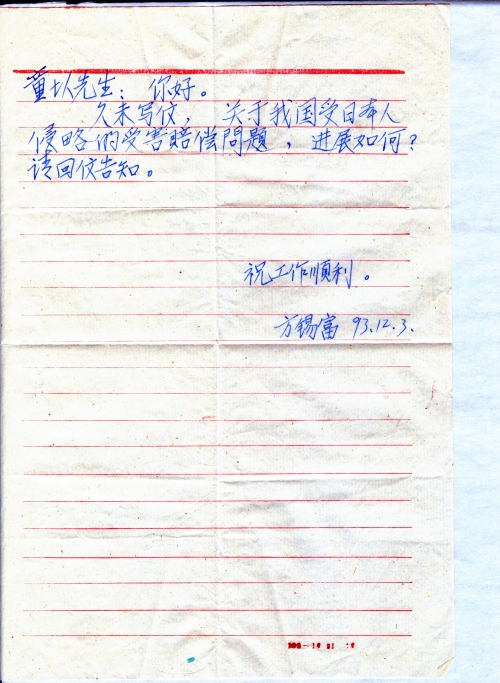 童圤先生：你好。
久未写伩，关于我国受日本人
侵略的受害赔偿問題，进展如何？
请回伩告知。
祝工作順利。
方锡富 93.12.3.